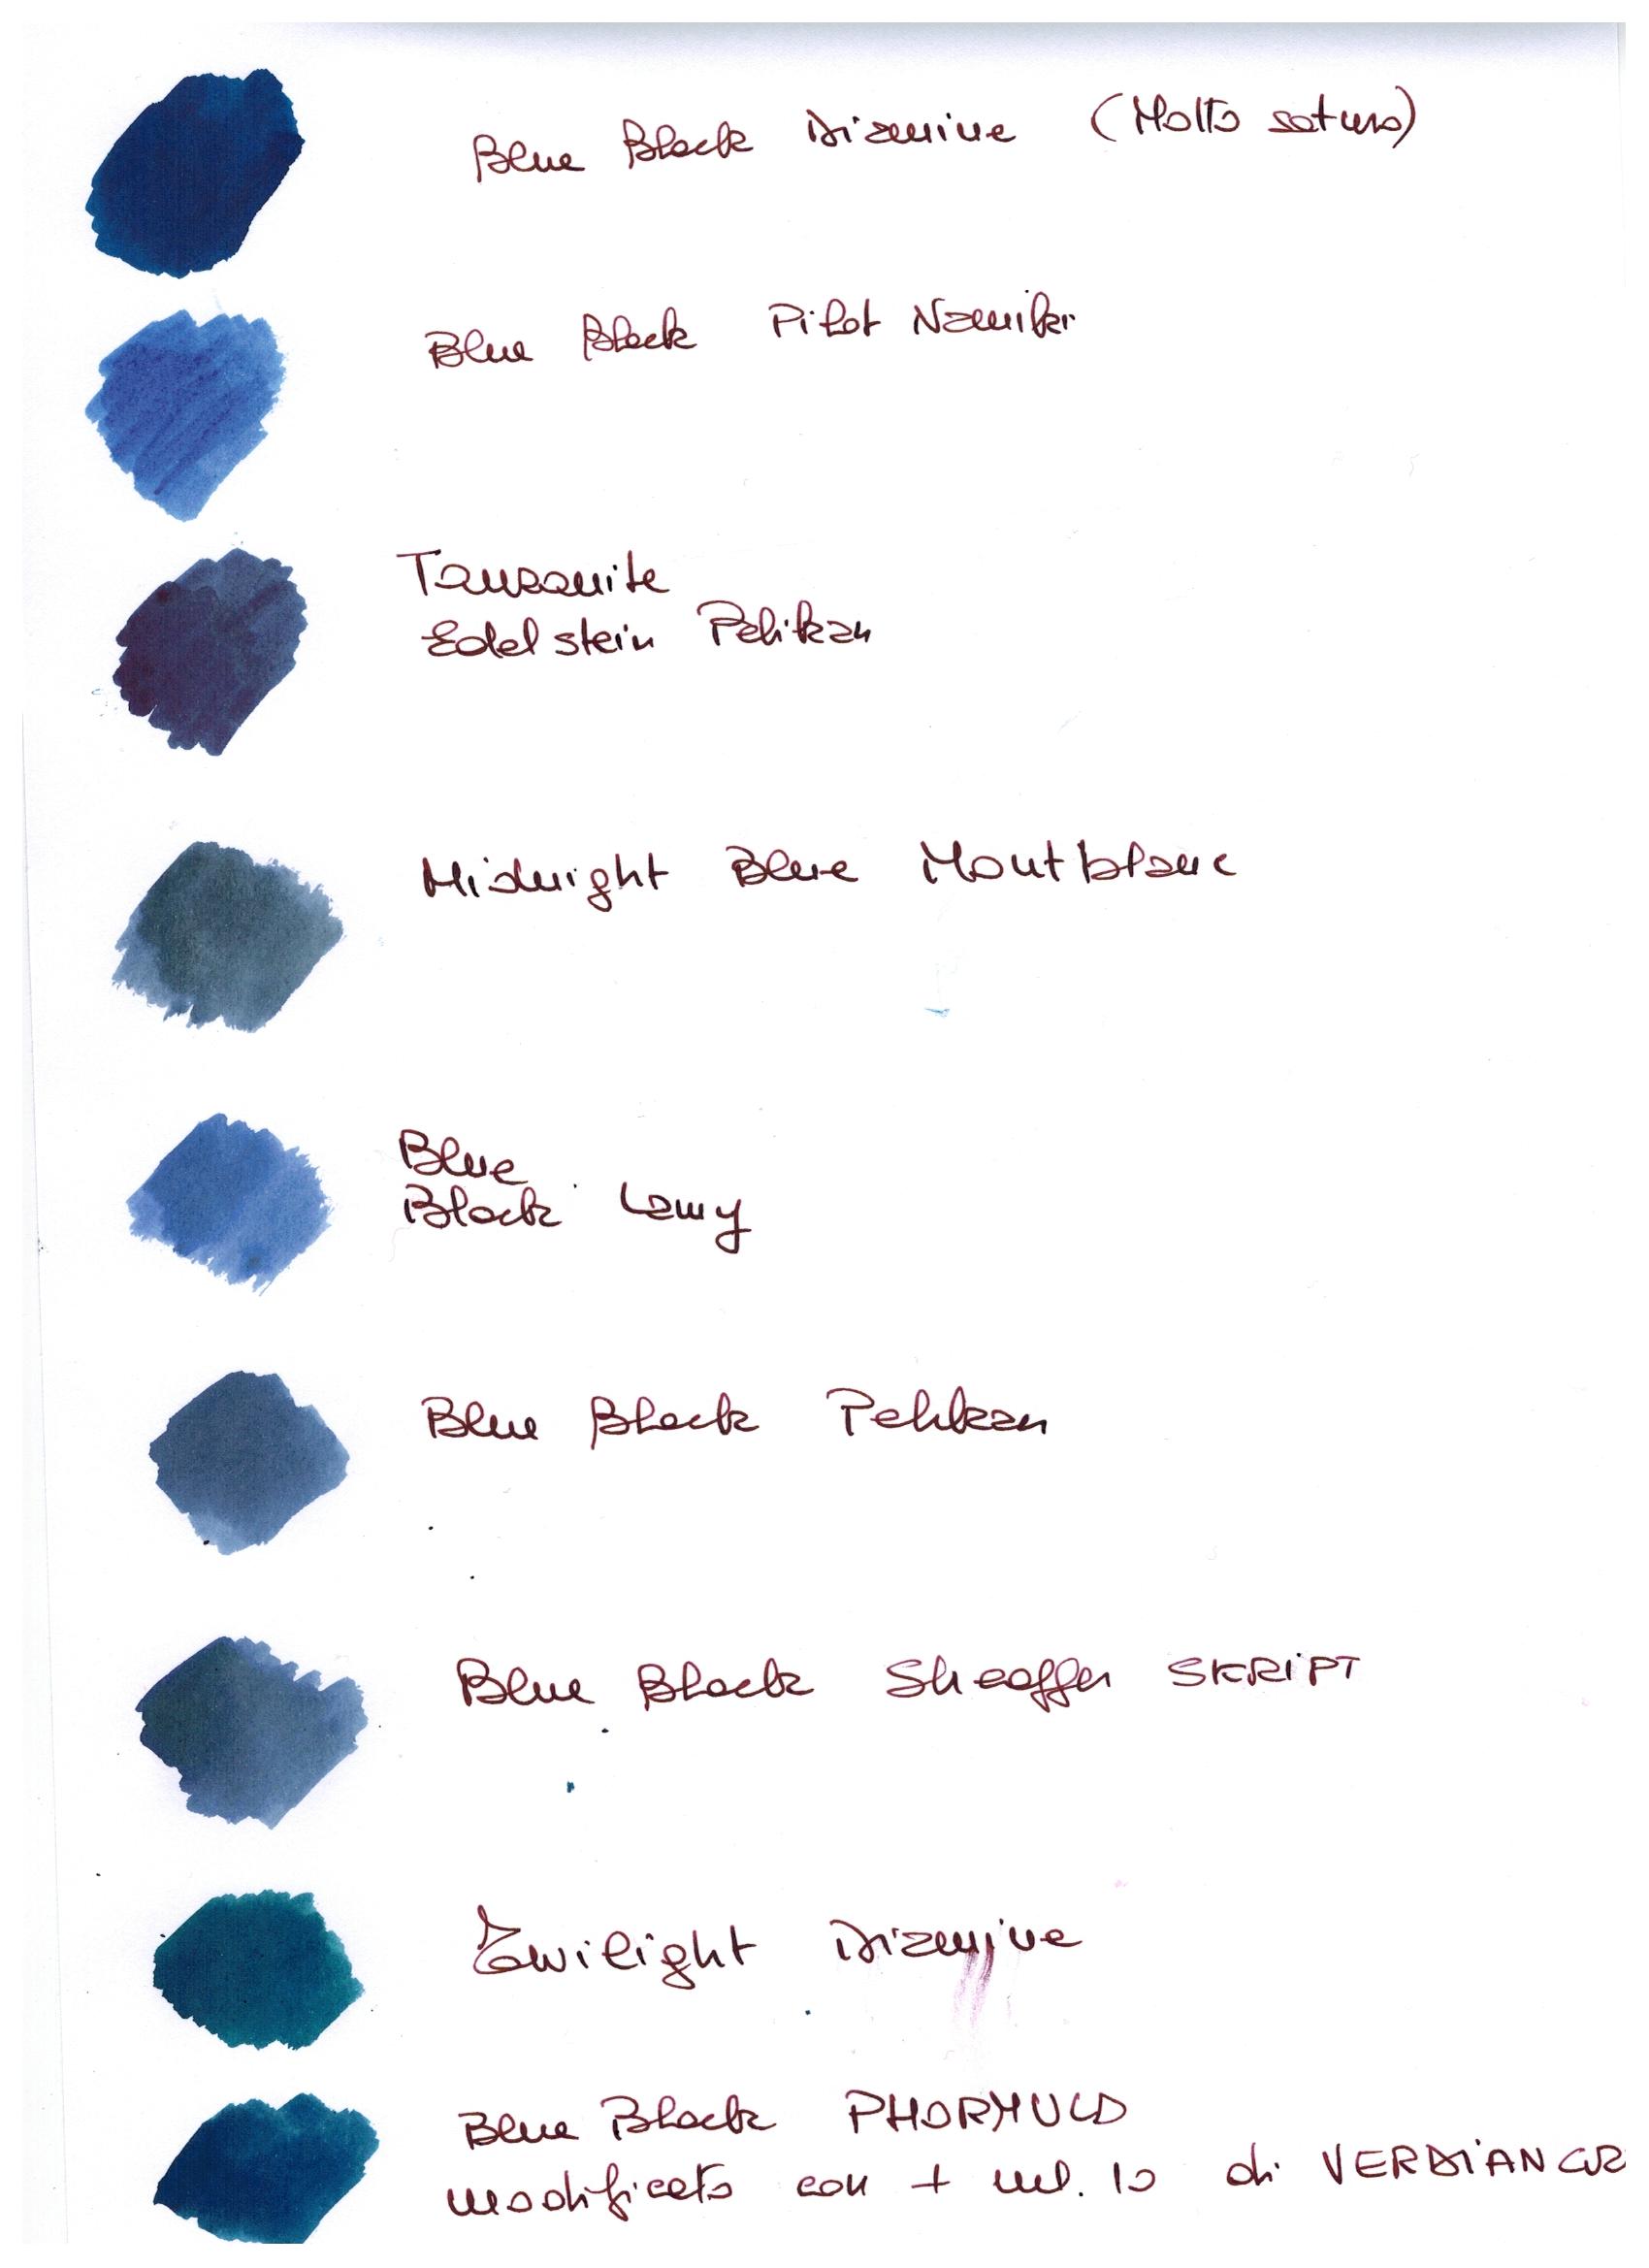 Blue Black Diamine (Molto saturo)
Blue Black Pilot Namiki
Tanzanite
Edelstein Pelikan
Midnight Blue Montblanc
Blue
Black Lamy
Blue Black Pelikan
Blue Black Sheaffer SKRiPT
Twilight Diamine
Blue Black
modificato con + ml. 10 di